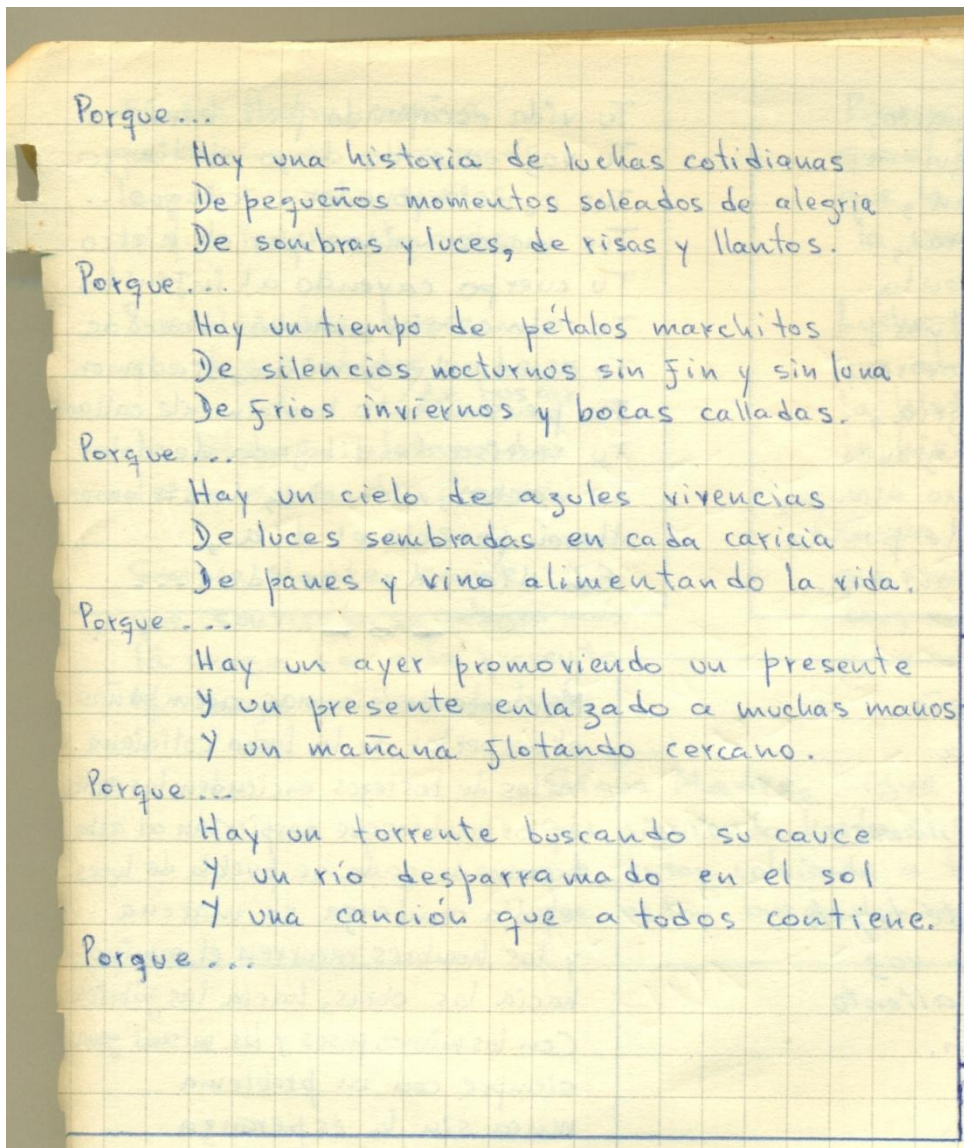 Porque...
Hay una historia de luchas cotidianas
De pequeños momentos soleados de alegria
De sombras y luces, de risas y llantos.
Porque...
Hay un tiempo de pétalos marchitos
De silencios nocturnos sin fin y sin luna
De frios inviernos y bocas calladas.
Porque...
Hay un cielo de azules vivencias
De luces sembradas en cada caricia
De panes y vino alimentando la vida.
Porque...
Hay un ayer promoviendo un presente
Y un presente enlazado a muchas manos
Y un mañana flotando cercano.
Porque...
Hay un torrente buscando su cauce
Y un río desparramado en el sol
Y una canción que a todos contiene.
Porque...